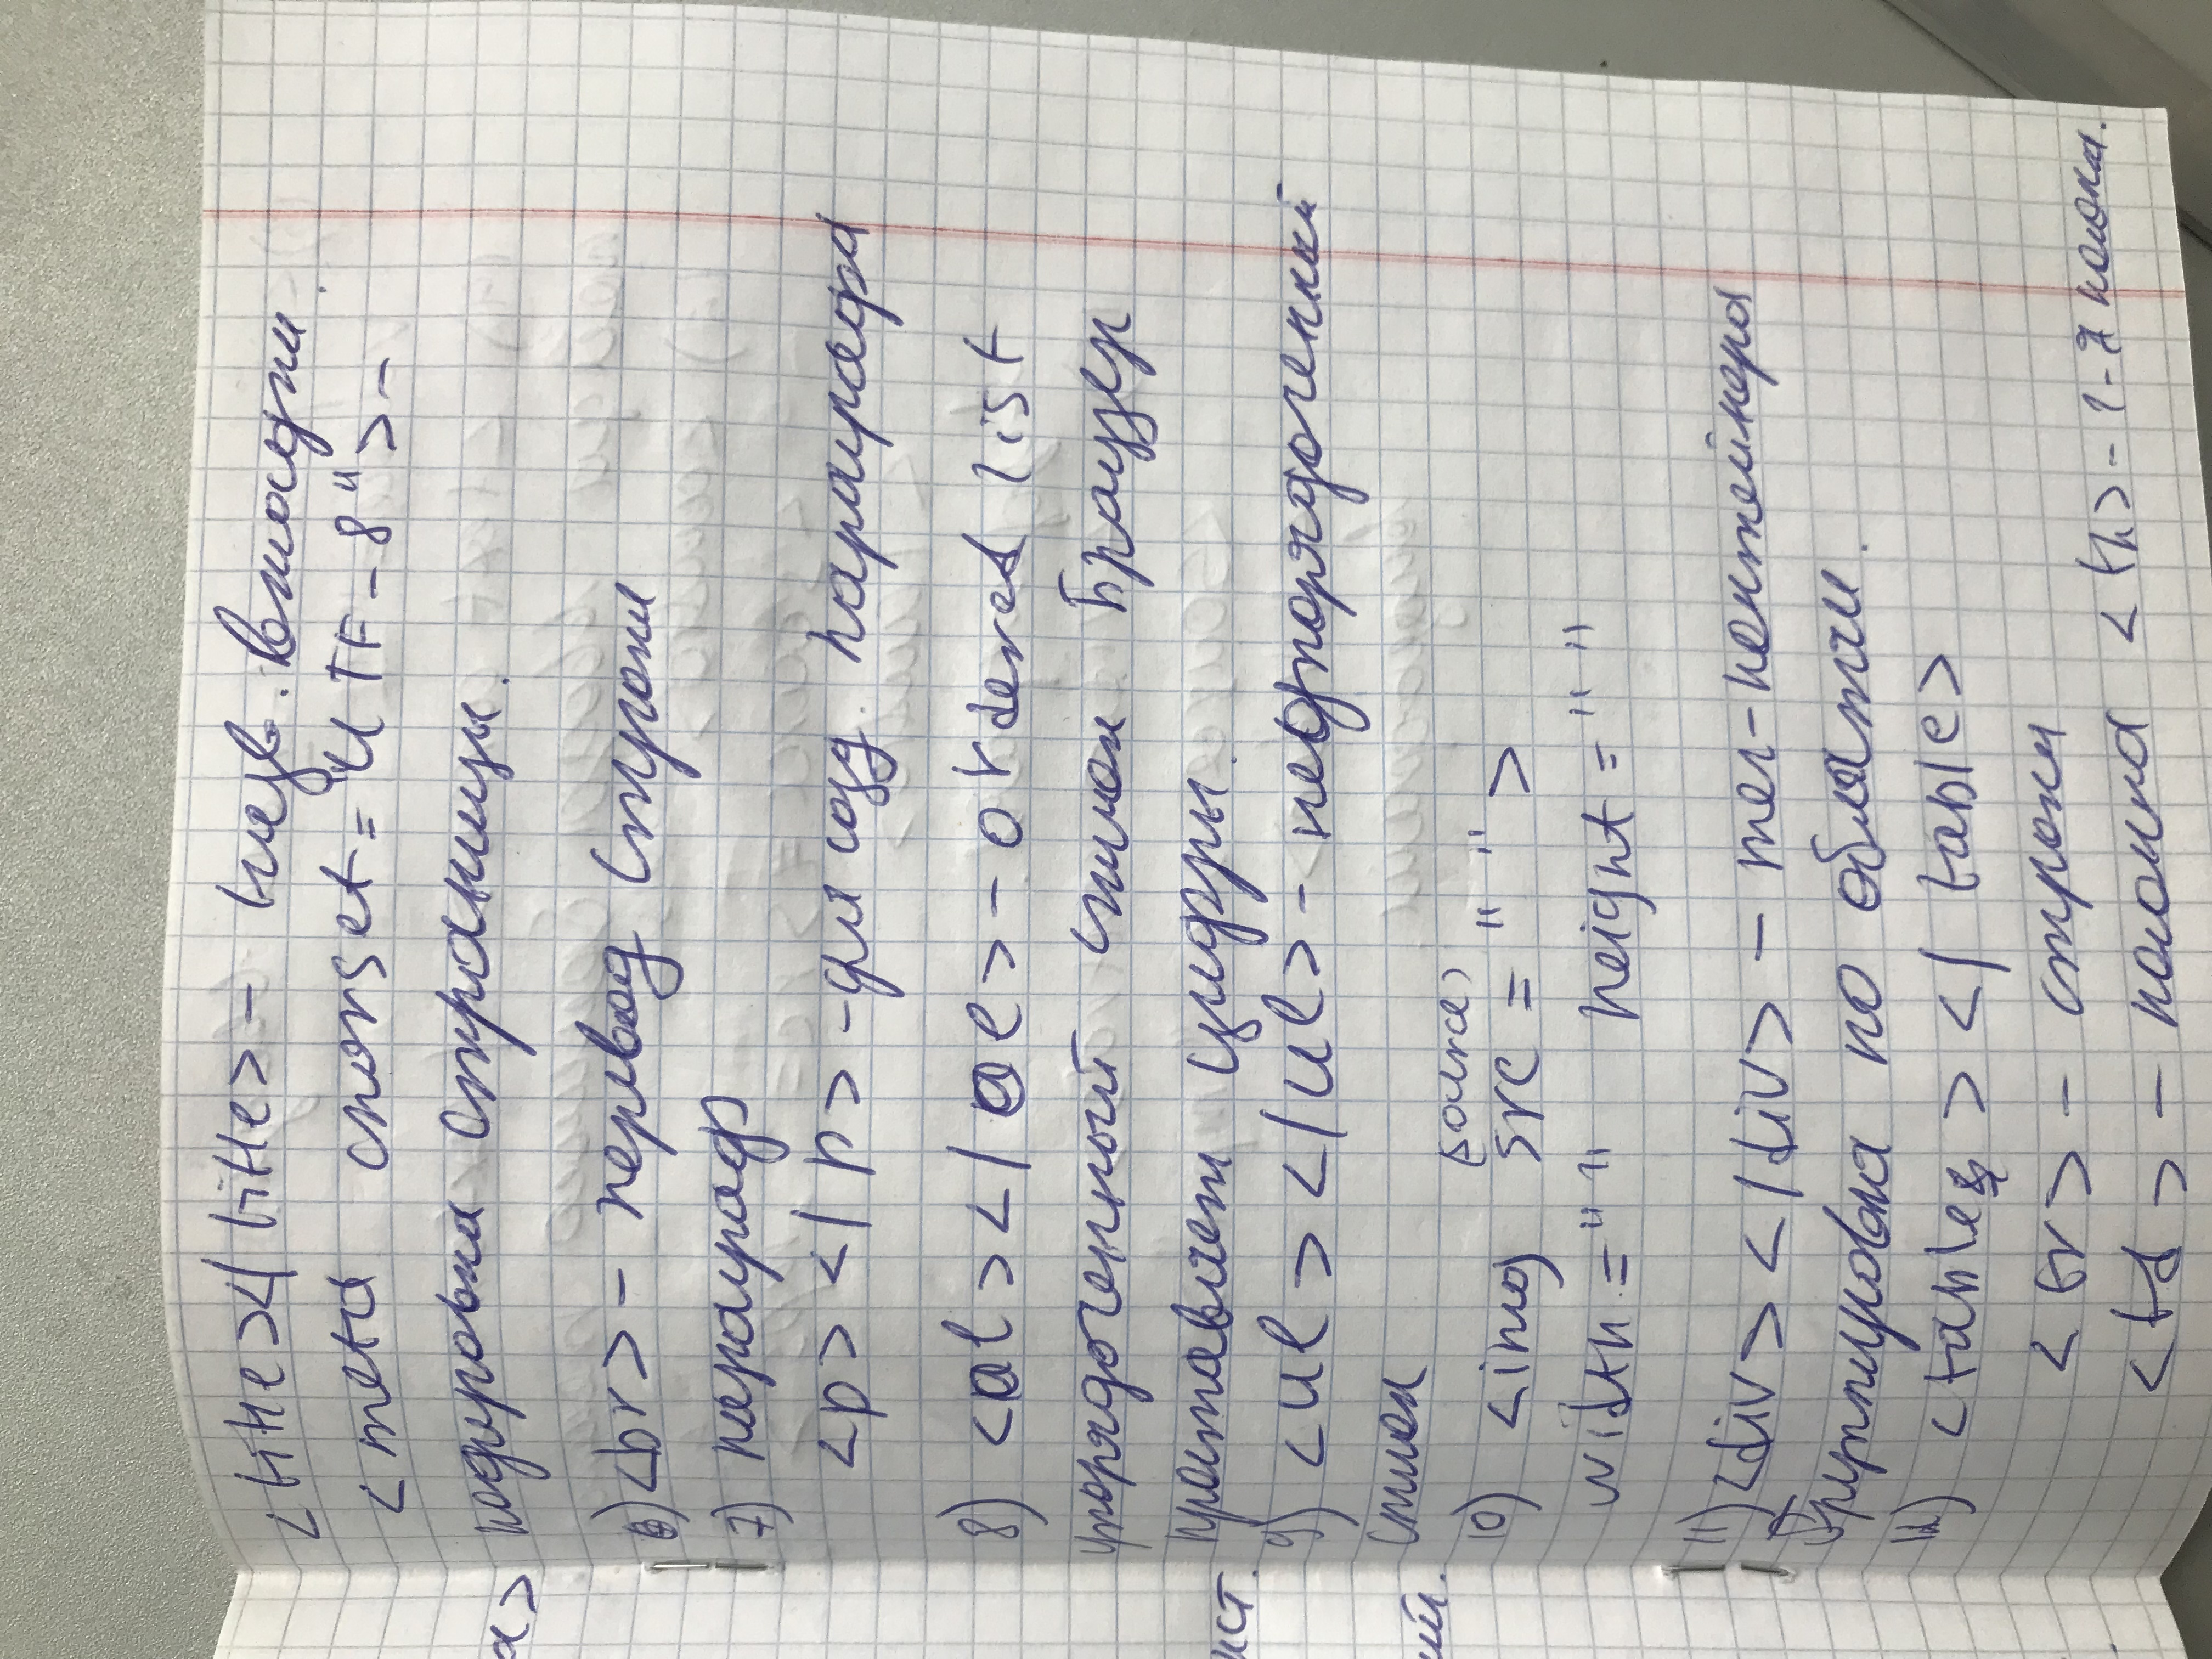 <title></title> - назв. вкладки.
<meta charset="UTF-8"> -
кодировка страницы.
а>
6) <br> - перевод строки
7) параграф
<p> </p> - для созд. параграфа
8) <ol></ol> - ordered list
упорядоченный список Браузер
проставляет цифры.
9) <ul></ul> - неупорядоченный
список
(source)
10) <img src = " " >
width = " " height = " "
11) <div></div> - тег-контейнера
Группировка по области.
12) <table></table>
<tr> - строки
<td> - колонка <th> - 1-я колонка.